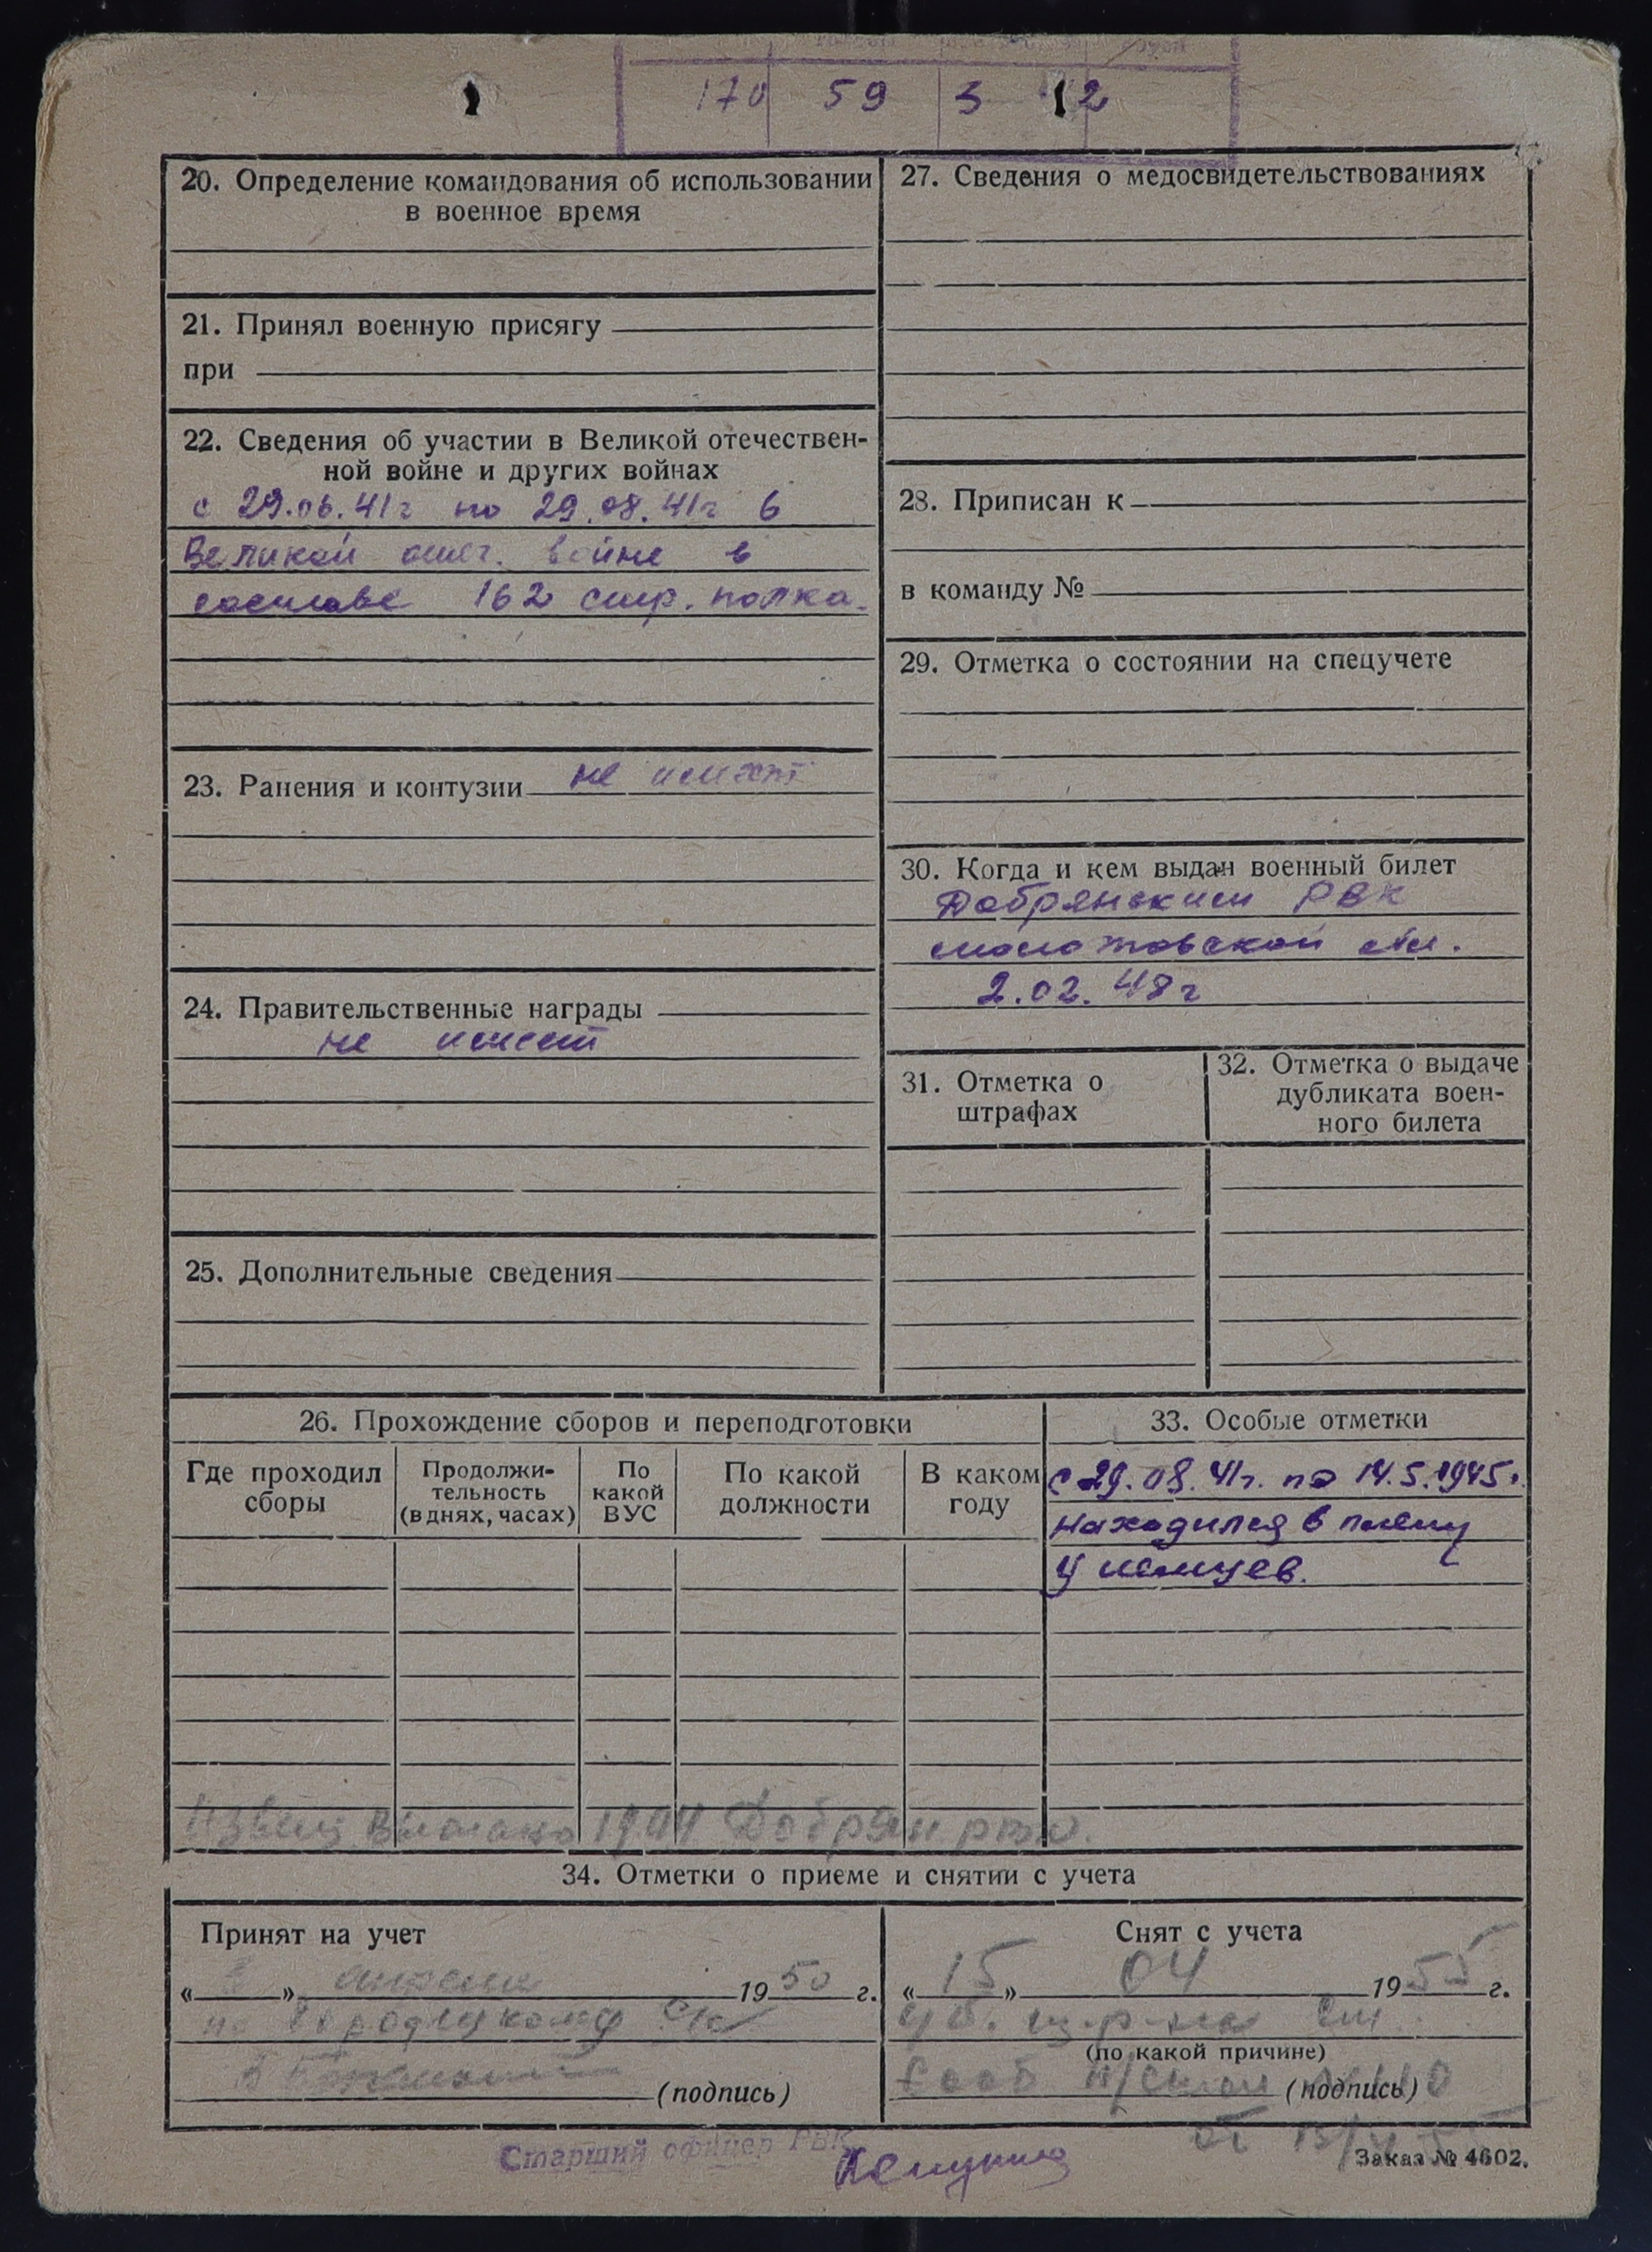 170 59 3 12
20. Определение командования об использовании
в военное время
21. Принял военную присягу
при
22. Сведения об участии в Великой отечествен-
ной войне и других войнах
с 29.06.41г по 29.08.41г в
Великой отеч. войне в
составе 162 стр. полка.
23. Ранения и контузии не имеет
24. Правительственные награды
не имеет
25. Дополнительные сведения
27. Сведения о медосвидетельствованиях
28. Приписан к
в команду №
29. Отметка о состоянии на спецучете
30. Когда и кем выдан военный билет
Добрянским РВК
молотовской обл.
2.02.48г
31. Отметка о
штрафах
32. Отметка о выдаче
дубликата воен-
ного билета
26. Прохождение сборов и переподготовки
Где проходил
сборы
Продолжи-
тельность
(в днях, часах)
По
какой
ВУС
По какой
должности
В каком
году
33. Особые отметки
с 29.08.41г. по 14.5.1945г.
находился в плену
у немцев.
Добрян
34. Отметки о приеме и снятии с учета
Принят на учет
« » 1950 г.
(подпись)
Снят с учета
«15» 04 1955 г.
(по какой причине)
(подпись)
от
Старший офицер РВК
Заказ № 4602.